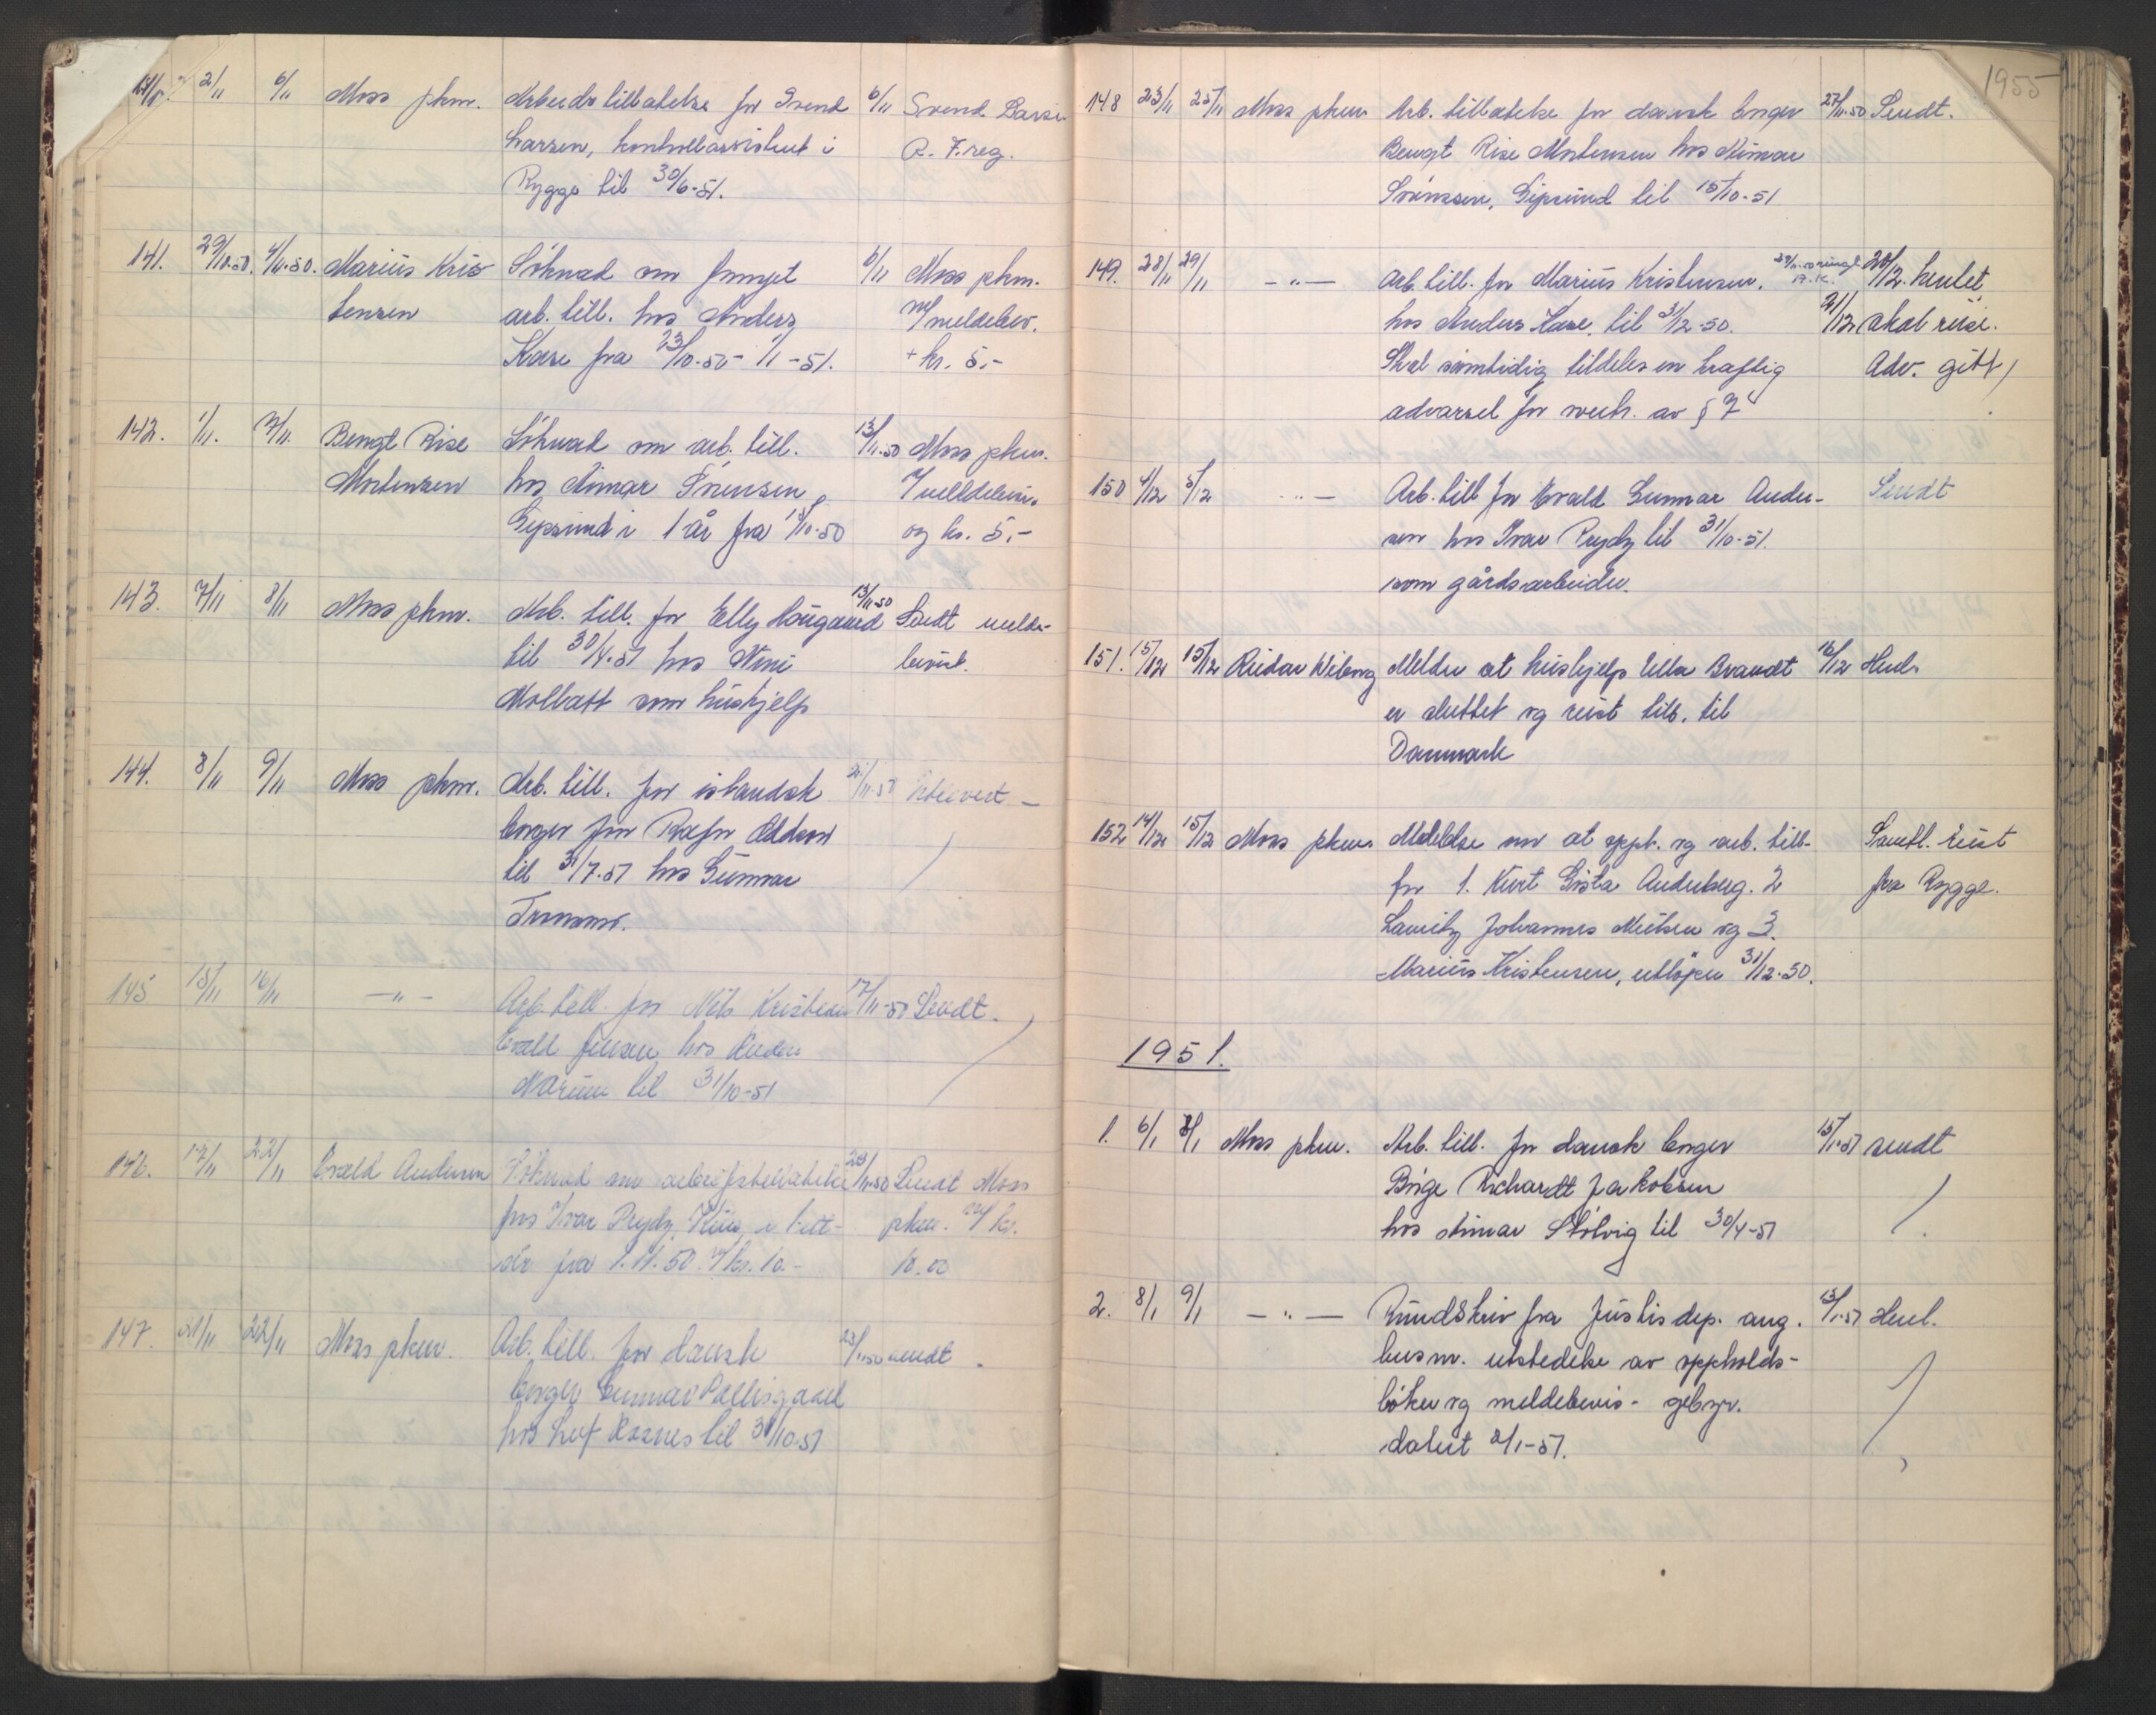 2/11 6/11 Moss pkm. Arbeidstillatelse for Svend 6/11 Svend Larsen
Larsen, kontrollassistent i R. F.reg.
Rygge til 30/6-51.
141. 29/10.50. 4/11.50. Marius Kris- Söknad om fornyet 6/11 Moss pkm.
tensen arb. till. hos Anders m/meldebev.
Kase fra 23/10-50 - 1/1-51. + kr. 5.-
142. 1/11. 7/11. Bengt Rise Söknad om arb. till. 13/11.50 Moss pkm.
Mortensen hos Aimar Sörensen, m/meldebevis
Gipsund i 1 år fra 15/10-50 og kr. 5.-
143. 7/11 8/11 Moss pkm. Arb. till. for Elly Hougaard 13/11.50 Sendt melde-
til 30/4.51 hos Nini bevis.
Molbatt som hushjelp
144. 8/11 9/11 Moss pkm. Arb. till. for islandsk 21/11.50
borger for Rafn
til 31/7.51 hos Gunnar
145 15/11 16/11 -"- Arb. till. for Nils Kristian 17/11-50 Sendt.
Evald Jensen hos
til 31/10-51
146. 17/11 22/11 Evald Andersen Söknad om arbeidstillatelse 23/11.50 Sendt Moss
hos Ivar Prydz, i ett pkm. m/ kr.
år fra 1.11.50 m/ kr. 10.- 10.00
147. 21/11 22/11 Moss pkm. Arb. till. for dansk 23/11.50 sendt.
borger Gunnar Pallisgaard
hos Leif Kasnes til 31/10.51
1955
148 23/11 25/11 Moss pkm. Arb. tillatelse for dansk borger 27/11.50 Sendt.
Bengt Rise Mortensen hos Aimar
Sörensen, Gipsund til 15/10-51
149. 28/11 29/11 -"- Arb. till. for Marius Kristensen, 29/11.50 ringt M.K. 20/12. hentet
hos Anders Kase, til 31/12-50. 21/12 skal reise.
Skal samtidig tildeles en kraftig Adv. gitt
advarsel for overtr. av § 7
150 4/12 5/12 -"- Arb. till for Evald Gunnar Ander- Sendt
sen hos Ivar Prydz til 31/10-51.
som gårdsarbeider.
151. 15/12 15/12 Reidar Wiborg Melder at hushjelp Ella Brandt 16/12 Henl.
er sluttet og reist tilb. til
Danmark
152 14/12 15/12 Moss pkm. Meddelelse om at opph. og arb. till- Samtl. reist
for 1. Kurt Gösta Anderberg. 2 fra Rygge.
Lauritz Johannes Nielsen og 3.
Marius Kristensen, utløper 31/12-50.
1951.
1. 6/1 8/1 Moss pkm. Arb. till. for dansk borger 15/1-51 sendt
Börge Richardt Jakobsen
hos Aimar Stolvig til 30/4-51
2. 8/1 9/1 -"- Rundskriv fra Justisdep. ang. 13/1-51 Henl.
best. utstedelse av oppholds-
böker og meldebevis - gebyr.
datert 2/1-51.